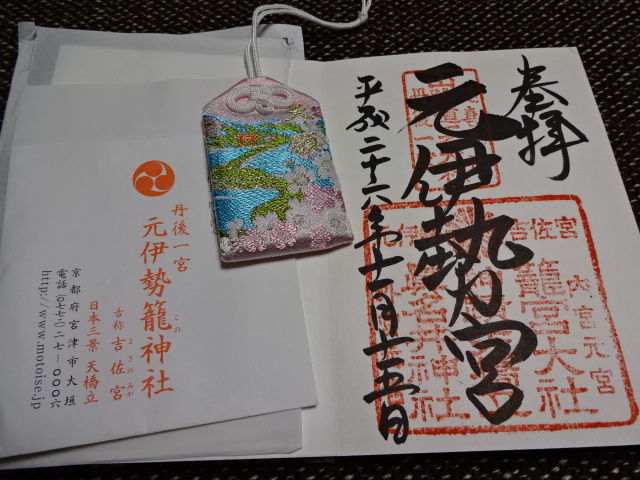 奉拝
元伊勢宮
平成二十六年十一月十五日
佐宮
内宮元宮
籠宮大社
丹後一宮
元伊勢籠神社
この
古称 吉佐宮
よさのみや
日本三景 天橋立
京都府宮津市大垣
電話(〇七七二)二七ー〇〇〇六
http://www.motoise.jp